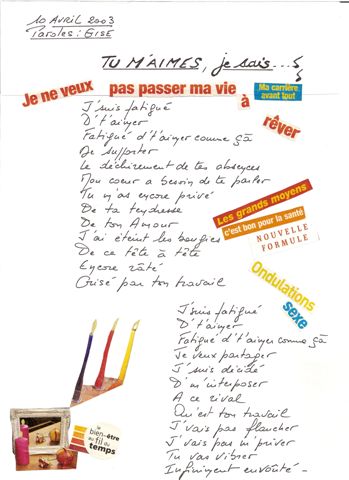 10 AVRIL 2003
Paroles: GISE
TU M'AIMES, je sais...
Je ne veux pas passer ma vie à rêver
Ma carrière,
avant tout
J'suis fatigué
D't'aimer
Fatigué d't'aimer comme çà
De supporter
Le déchirement de tes absences
Mon coeur a besoin de te parler
Tu m'as encore privé
De ta tendresse
De ton Amour
J'ai éteint les bougies
De ce tête à tête
Encore râté
Grisé par ton travail
Les grands moyens
c'est bon pour la santé
NOUVELLE
FORMULE
Ondulations
sexe
J'suis fatigué
D't'aimer
Fatigué d't'aimer comme çà
Je veux partager
J'suis décidé
D'm'interposer
A ce rival
Qu'est ton travail
J'vais pas flancher
J'vais pas m'priver
Tu vas vibrer
Infiniment envoûté
le
bien-être
au fil du
temps